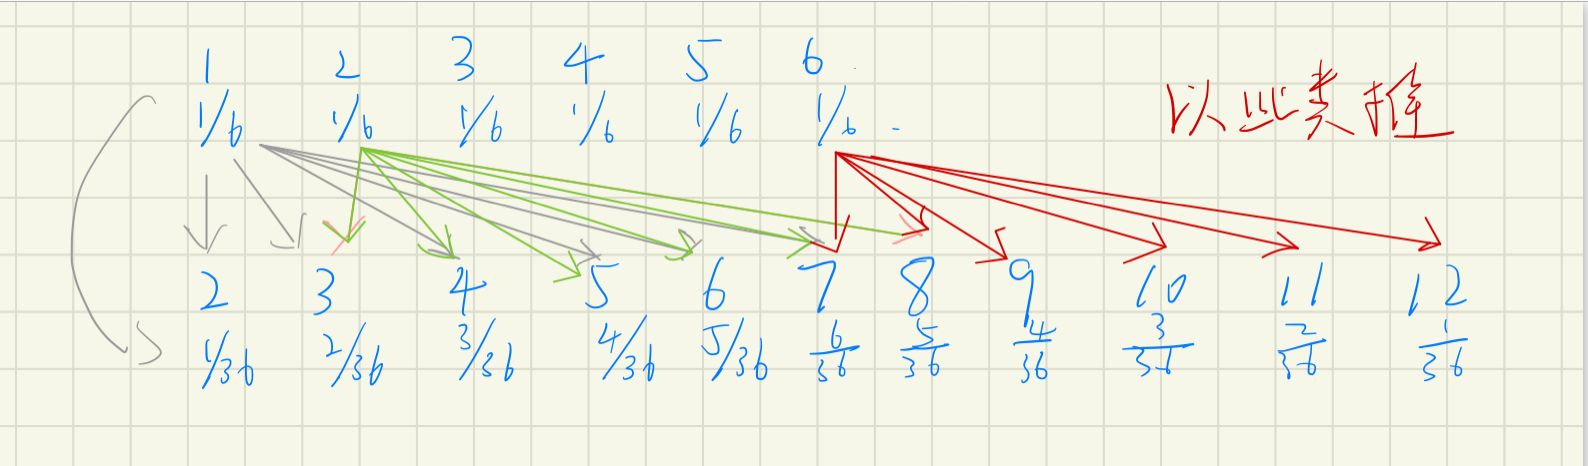 1 2 3 4 5 6
1/6 1/6 1/6 1/6 1/6 1/6
以此类推
2 3 4 5 6 7 8 9 10 11 12
1/36 2/36 3/36 4/36 5/36 6/36 5/36 4/36 3/36 2/36 1/36